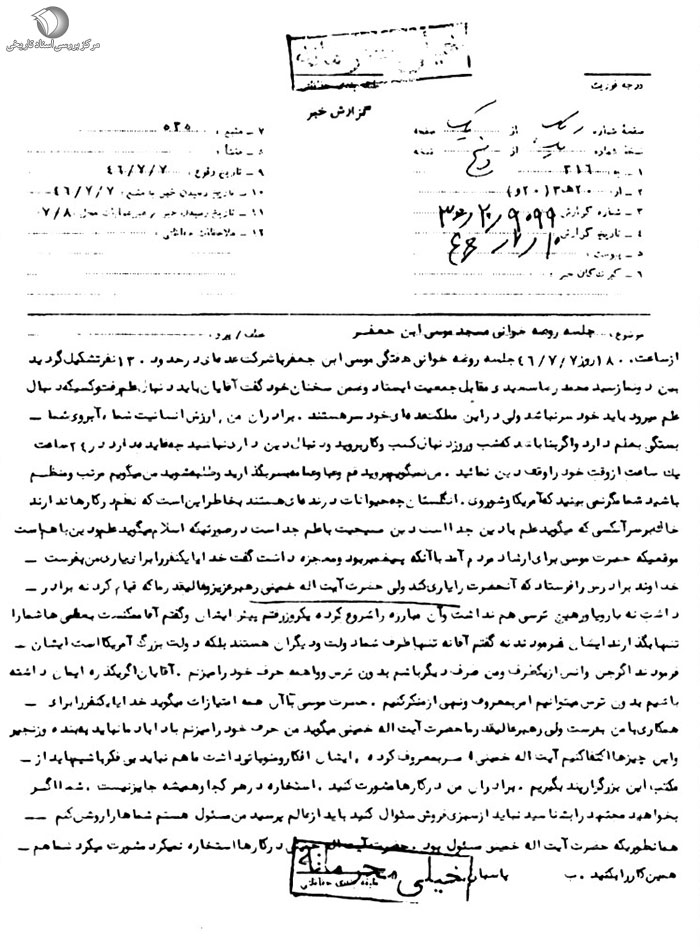 مرکز بررسی اسناد تاریخی
خیلی محرمانه
طبقه بندی حفاظتی
درجه فوریت
گزارش خبر
صفحه شماره یک از یک صفحه
نسخه شماره از پنج نسخه
۱ - به ۳۱۶
۲ - از ۲۰ ه‍ ۳ (۲۰ و)
۳ - شماره گزارش
۴ - تاریخ گزارش
۵ - پیوست
۶ - گیرندگان خبر
۷ - منبع
۸ - منشأ
۹ - تاریخ وقوع ۴۶/۷/۷
۱۰ - تاریخ رسیدن خبر به منبع ۴۶/۷/۷
۱۱ - تاریخ رسیدن خبر به رهبر عملیات محل ۷/۸
۱۲ - ملاحظات حفاظتی
موضوع : جلسه روضه خوانی مسجد موسی ابن جعفر عطف / پیرو :
از ساعت ۱۸۰۰ روز ۴۶/۷/۷ جلسه روضه خوانی هفتگی موسی ابن جعفر با شرکت عده ای در حدود ۱۳۰ نفر تشکیل گردید
بین دو نماز سید محمد رضا سعیدی مقابل جمعیت ایستاد و ضمن سخنان خود گفت آقایان باید دنبال علم رفت و کسیکه دنبال
علم میرود باید خود سر نباشد ولی در این مملکت عده ای خود سر هستند . برادران من ارزش انسانیت شما و آبروی شما
بستگی بعلم دارد و اگر بنا باشد که شب و روز دنبال کسب و کار بروید و دنبال دین دار نباشید چه فایده دارد در ۲۴ ساعت
یک ساعت از وقت خود را وقف دین نمائید . من نمیگویم بروید قم و عبا و عمامه بسر بگذارید و طلبه شوید من میگویم مرتب و منظم
باشید شما مگر نمی بینید که آمریکا و شوروی . انگلستان چه حیوانات درنده ای هستند بخاطر این است که نظم در کارها ندارند
خاک بر سر آنکسی که میگوید علم با دین جدا است دین مسیحیت با علم جدا است در صورتیکه اسلام میگوید علم و دین با هم است
موقعیکه حضرت موسی برای ارشاد مردم آمد با آنکه پیغمبر بود و معجزه داشت گفت خدایا یکنفر را برای یاری من بفرست
خداوند برادرش را فرستاد که آنحضرت را یاری کند ولی حضرت آیت اله خمینی رهبر عزیز و عالیقدر ما که قیام کرد نه برادر
داشت نه یار و یاور هیچ ترسی هم نداشت و آن مبارزه را شروع کرد یکروز رفتم پیش ایشان و گفتم آقا ممکنست بعضی ها شما را
تنها بگذارند ایشان فرمودند نه گفتم آقا نه تنها طرف شما دولت و دیگران هستند بلکه دولت بزرگ آمریکا است ایشان
فرمودند اگر جن و انس از یکطرف و من طرف دیگر باشم بدون ترس و واهمه حرف خود را میزنم . آقایان اگر یکذره ایمان داشته
باشیم بدون ترس میتوانیم امر بمعروف و نهی از منکر کنیم . حضرت موسی با آن همه امتیازات میگوید خدایا یکنفر را برای
همکاری با من بفرست ولی رهبر عالیقدر ما حضرت آیت اله خمینی میگوید من حرف خود را میزنم باداباد ما نباید به بند و زنجیر
و این چیزها اکتفا کنیم آیت اله خمینی امر بمعروف کرد ، ایشان افکار و ضوابط داشت ما هم نباید بی فکر باشیم باید از
مکتب این بزرگوار پند بگیریم . برادران من در کارها مشورت کنید . استخاره در هر کجا و همیشه جایز نیست . شما اگر
بخواهید مجتهد را بشناسید نباید از سبزی فروش سئوال کنید باید از عالم پرسید من مسئول هستم شماها را روشن کنم
همانطوریکه حضرت آیت اله خمینی مسئول بود . حضرت آیت اله خمینی در کارها استخاره نمیکرد مشورت میکرد شما هم
همین کار را بکنید . ب
خیلی محرمانه
طبقه بندی حفاظتی